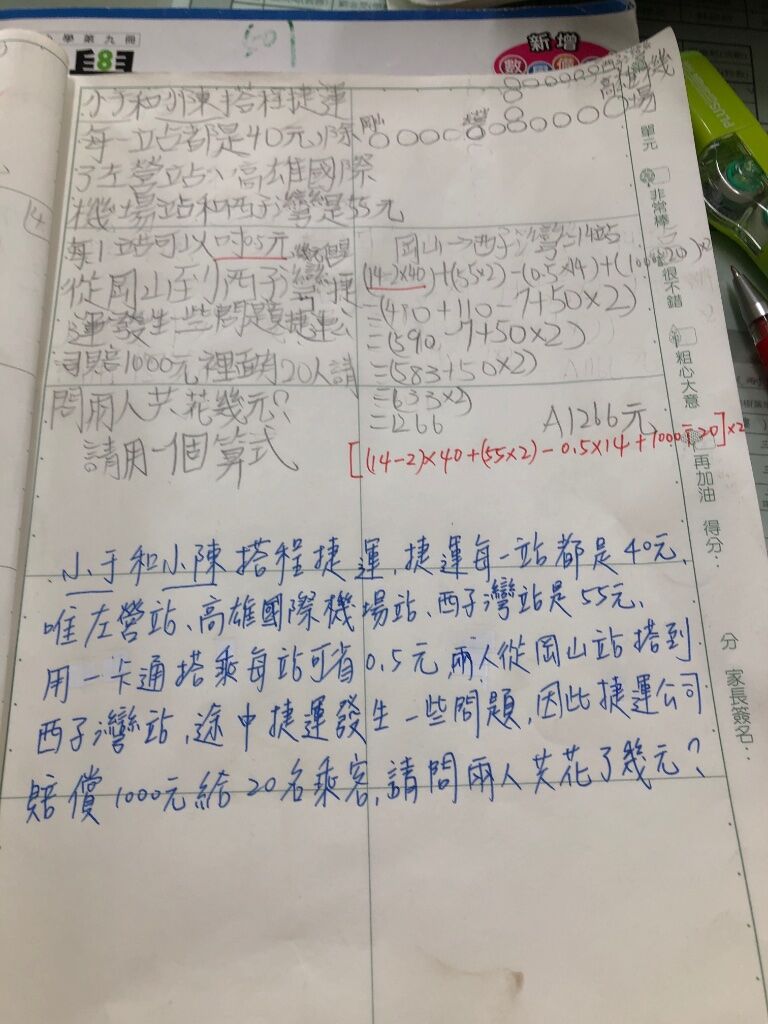 小學第九冊
新增
數
單元
非常棒
很不錯
粗心大意
再加油
得分：
分
家長簽名：
小于和小陳搭程捷運
每一站都是40元,除
了左營站、高雄國際
機場站和西子灣是55元
每1站可以
從岡山到西子灣捷
運發生一些問題捷運公
司賠1000元裡面有20人請
問兩人共花幾元？
請用一個算式
岡山→西子灣=14站
(14-2×40)+(55×2)-(0.5×14)+(1000÷20)×2
=(480+110-7+50×2)
=(590-7+50×2)
=(583+50×2)
=633×2
=1266
A1266元
[(14-2)×40+(55×2)-0.5×14+1000÷20]×2
小于和小陳搭程捷運,捷運每一站都是40元、
唯左營站、高雄國際機場站、西子灣站是55元、
用一卡通搭乘每站可省0.5元,兩人從岡山站搭到
西子灣站,途中捷運發生一些問題,因此捷運公司
賠償1000元給20名乘客,請問兩人共花了幾元？